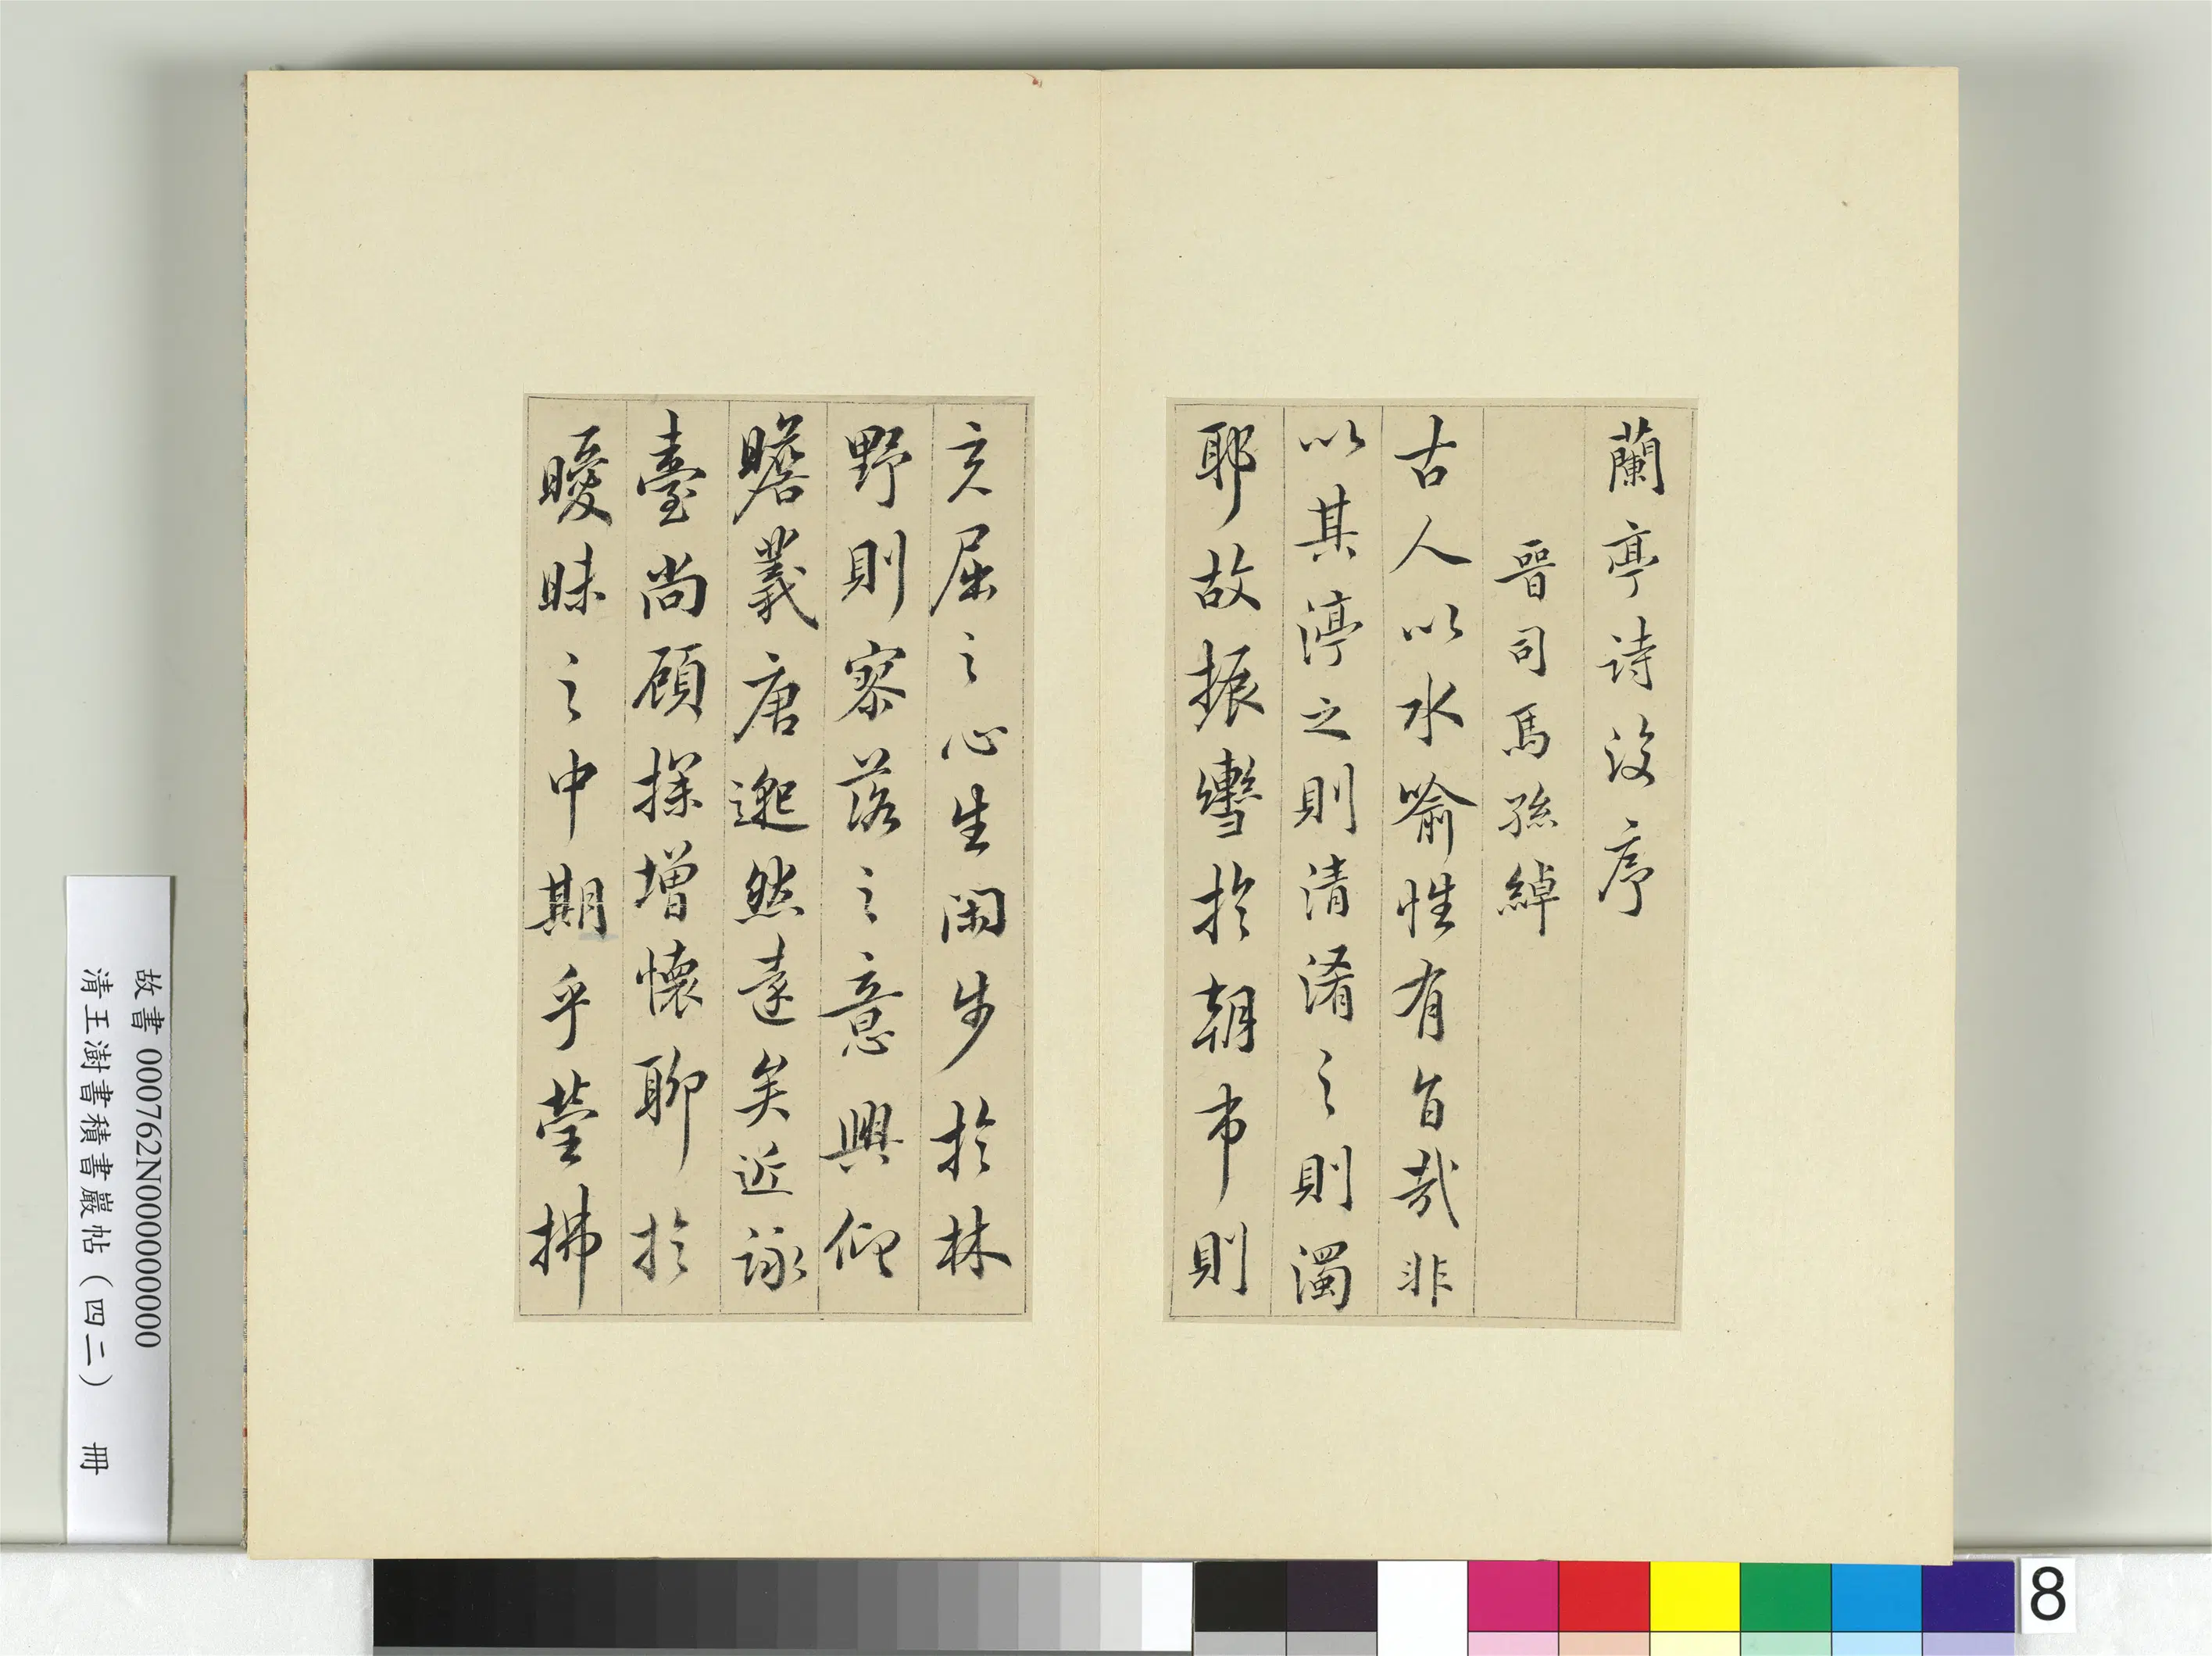 蘭亭詩後序
晉司馬孫綽
古人以水喻性有旨哉非
以其渟之則清淆之則濁
耶故振轡於朝市則
充屈之心生閑步於林
野則寥落之意興仰
瞻羲唐邈然遠矣近詠
臺尚顧探增懷聊於
曖昧之中期乎瑩拂
故書 000762N000000000
清王澍書積書巖帖（四二） 冊
8